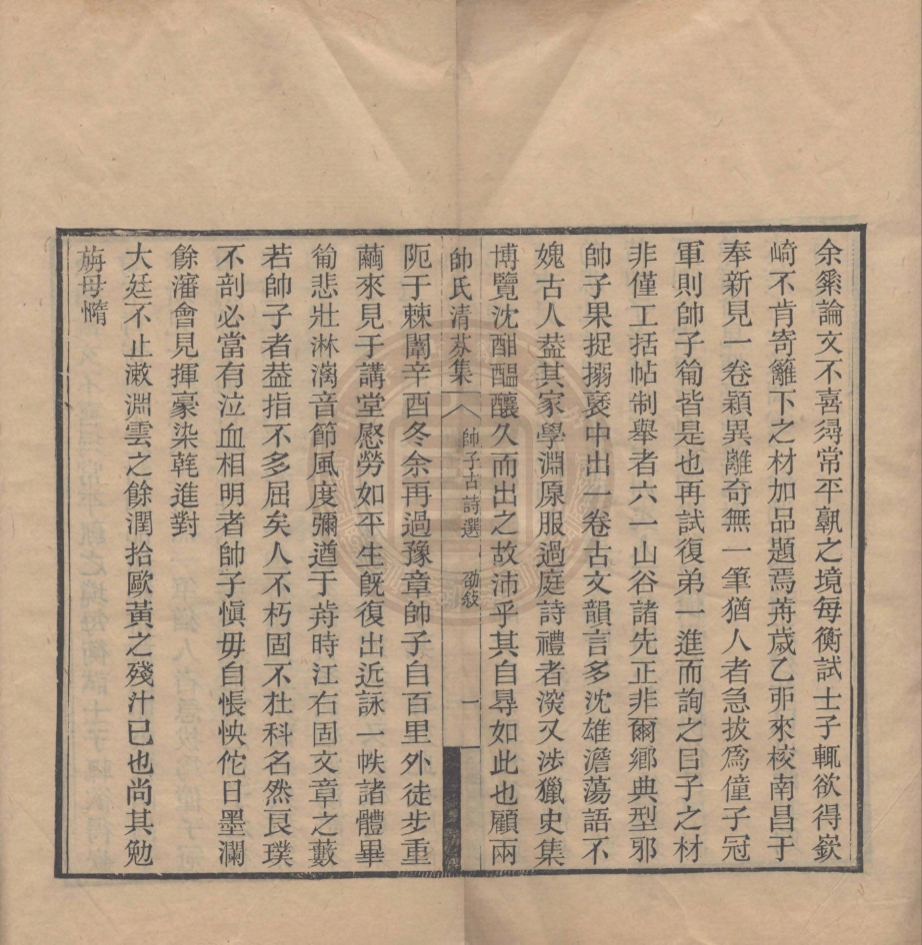 余䌛論文不喜尋常平𫠊之境每衡試士子輒欲得嶔
崎不肯寄籬下之材加品題焉歬歳乙丣來校南昌于
奉新見一卷穎異離奇無一筆猶人者急拔爲僮子冠
軍則帥子㒺皆是也再試復弟一進而詢之曰子之材
非僅工括帖制舉者六一山谷諸先正非爾鄉典型邪
帥子果捉搦褎中出一卷古文韻言多沈雄澹蕩語不
媿古人葢其家學淵原服過庭詩禮者㴱又涉獵史集
博覽沈酣醖釀久而出之故沛乎其自尋如此也顧兩
帥氏清芬集 帥子古詩選 劭敍 一
阨于棘闈辛酉冬余再過豫章帥子自百里外徒步重
繭來見于講堂慰勞如平生旣復出近詠一帙諸體畢
㒺悲壯淋漓音節風度彌遒于歬時江右固文章之藪
若帥子者葢指不多屈矣人不朽固不在科名然良璞
不剖必當有泣血相明者帥子愼毋自悵怏佗日墨瀾
餘瀋會見揮豪染𦒋進對
大廷不止漱淵雲之餘潤拾歐黃之殘汁巳也尚其勉
旃毋惰